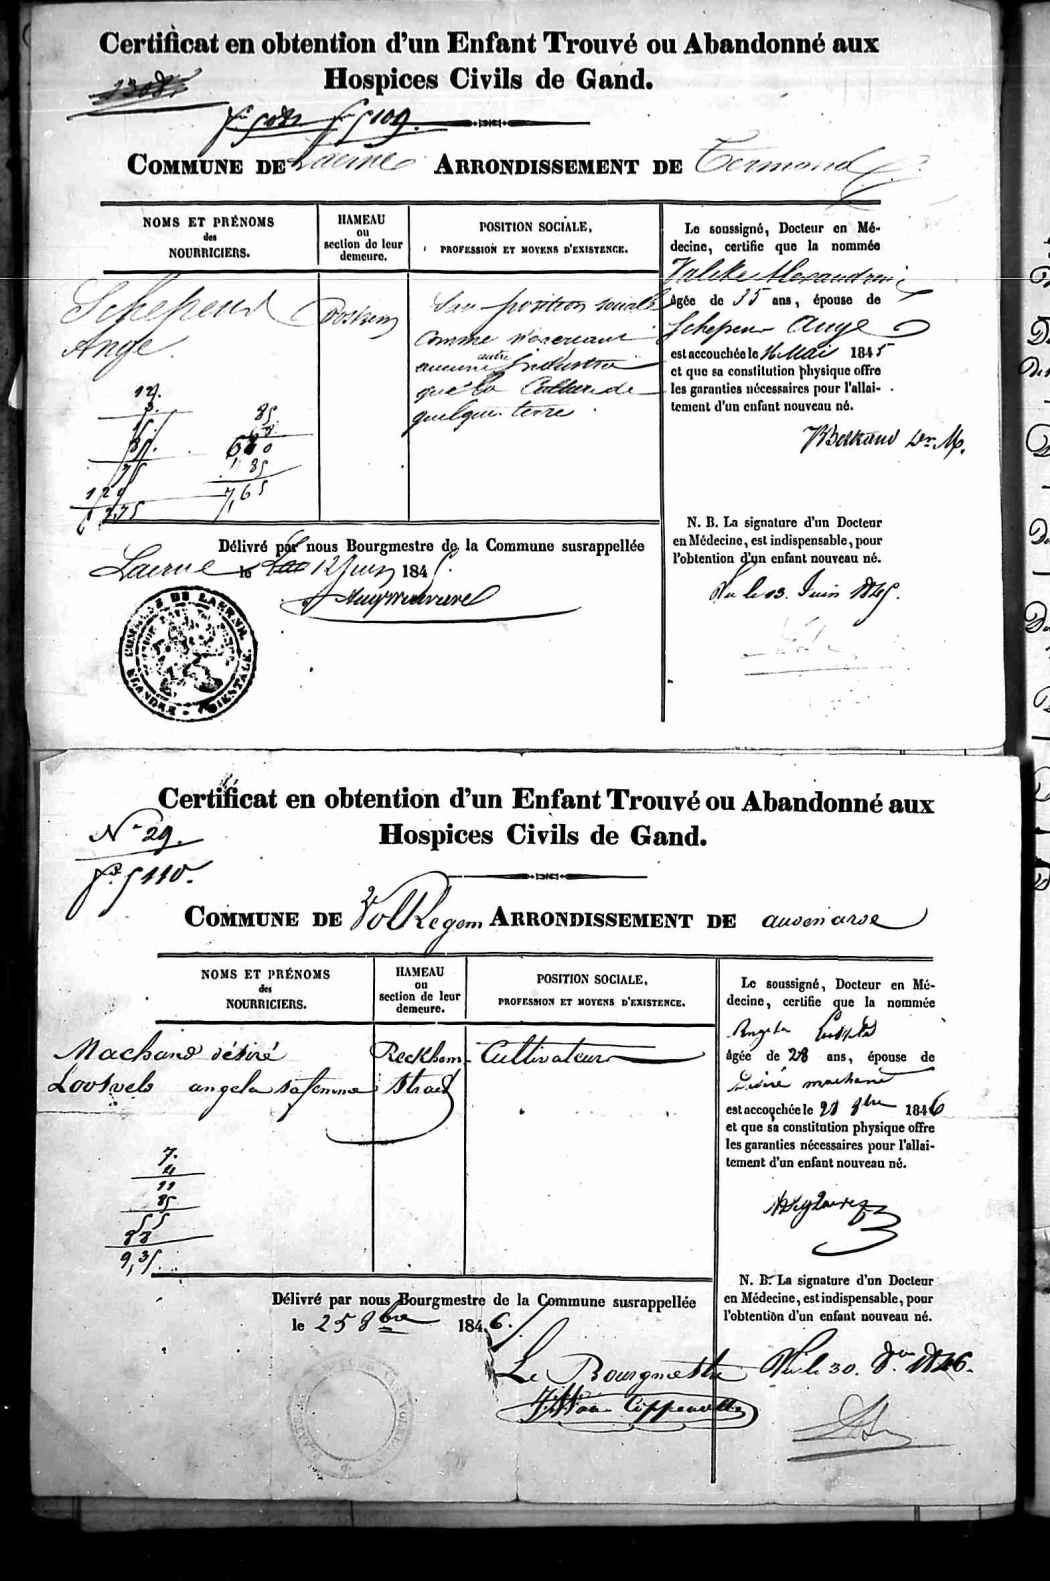 Certificat en obtention d'un Enfant Trouvé ou Abandonné aux
Hospices Civils de Gand.
5109.
COMMUNE DE Laerne ARRONDISSEMENT DE Termonde
NOMS ET PRÉNOMS
des
NOURRICIERS.
HAMEAU
ou
section de leur
demeure.
POSITION SOCIALE,
PROFESSION ET MOYENS D'EXISTENCE.
Schepens
Ange.
position sociale
comme n'exercant
aucune autre industrie
que la Culture de
quelque terre.
12.
85.
7,65
Le soussigné, Docteur en Mé-
decine, certifie que la nommée
âgée de 35 ans, épouse de
Schepens Ange
est accouchée le 16 Mai 1845
et que sa constitution physique offre
les garanties nécessaires pour l'allai-
tement d'un enfant nouveau né.
N. B. La signature d'un Docteur
en Médecine, est indispensable, pour
l'obtention d'un enfant nouveau né.
Vu le 13. Juin 1845.
Délivré par nous Bourgmestre de la Commune susrappellée
Laerne le 12 Juin 1845.
COMMUNE DE LAERNE. FLANDRE ORIENTALE
Certificat en obtention d'un Enfant Trouvé ou Abandonné aux
Hospices Civils de Gand.
No 29.
5110.
COMMUNE DE Volkegem ARRONDISSEMENT DE audenarde
NOMS ET PRÉNOMS
des
NOURRICIERS.
HAMEAU
ou
section de leur
demeure.
POSITION SOCIALE,
PROFESSION ET MOYENS D'EXISTENCE.
Machand désiré
Lootvelt angela sa femme
Reckhem
straet
Cultivateur
7.
4
11
85
55
88
9,35.
Le soussigné, Docteur en Mé-
decine, certifie que la nommée
Angela
âgée de 28 ans, épouse de
Désiré machand
est accouchée le 21 8bre 1846
et que sa constitution physique offre
les garanties nécessaires pour l'allai-
tement d'un enfant nouveau né.
N. B. La signature d'un Docteur
en Médecine, est indispensable, pour
l'obtention d'un enfant nouveau né.
Vu le 30. 8bre 1846.
Délivré par nous Bourgmestre de la Commune susrappellée
le 25 8bre 1846.
Le Bourgmestre